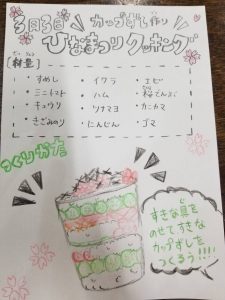 3月3日 カップずし作り
ひなまつりクッキング
[材料]
・すめし ・イクラ ・エビ
・ミニトマト ・ハム ・桜でんぶ
・キュウリ ・ツナマヨ ・カニカマ
・きざみのり ・にんじん ・ゴマ
つくりかた
すきな具を
のせてすきな
カップずしを
つくろう!!!!